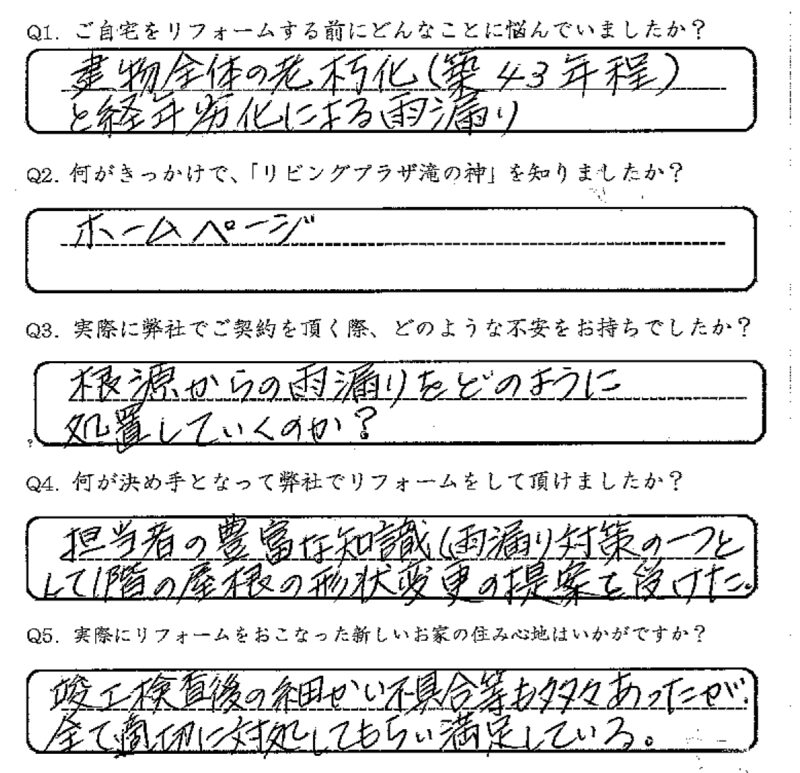 Q1. ご自宅をリフォームする前にどんなことに悩んでいましたか？
建物全体の老朽化(築43年程)
と経年劣化による雨漏り
Q2. 何がきっかけで、「リビングプラザ滝の神」を知りましたか？
ホームページ
Q3. 実際に弊社でご契約を頂く際、どのような不安をお持ちでしたか？
根源からの雨漏りをどのように
処置していくのか？
Q4. 何が決め手となって弊社でリフォームをして頂けましたか？
担当者の豊富な知識(雨漏り対策の一つと
して1階の屋根の形状変更の提案を受けた。
Q5. 実際にリフォームをおこなった新しいお家の住み心地はいかがですか？
竣工検査後の細かい不具合等も多々あったが、
全て適切に対処してもらい満足している。